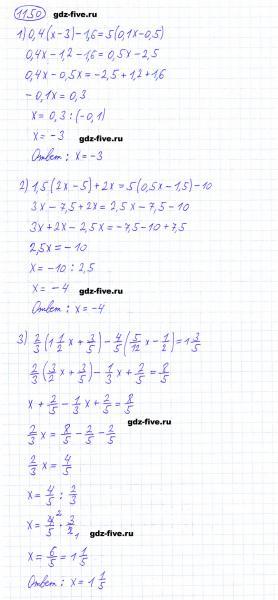 1150 gdz-five.ru
1) 0,4(x-3)-1,6=5(0,1x-0,5)
0,4x-1,2-1,6=0,5x-2,5
0,4x-0,5x=-2,5+1,2+1,6
-0,1x=0,3
x=0,3:(-0,1)
x=-3 gdz-five.ru
Ответ: x=-3
2) 1,5(2x-5)+2x=5(0,5x-1,5)-10
3x-7,5+2x=2,5x-7,5-10
3x+2x-2,5x=-7,5-10+7,5
2,5x=-10
x=-10:2,5
x=-4 gdz-five.ru
Ответ: x=-4
3) 2/3(1 1/2 x+3/5)-4/5(5/12 x-1/2)=1 3/5
2/3(3/2 x+3/5)-1/3 x+2/5=8/5
x+2/5-1/3 x+2/5=8/5
gdz-five.ru
2/3 x=8/5-2/5-2/5
2/3 x=4/5
x=4/5:2/3
x=4/5²·3/2₁
gdz-five.ru
x=6/5=1 1/5
Ответ: x=1 1/5